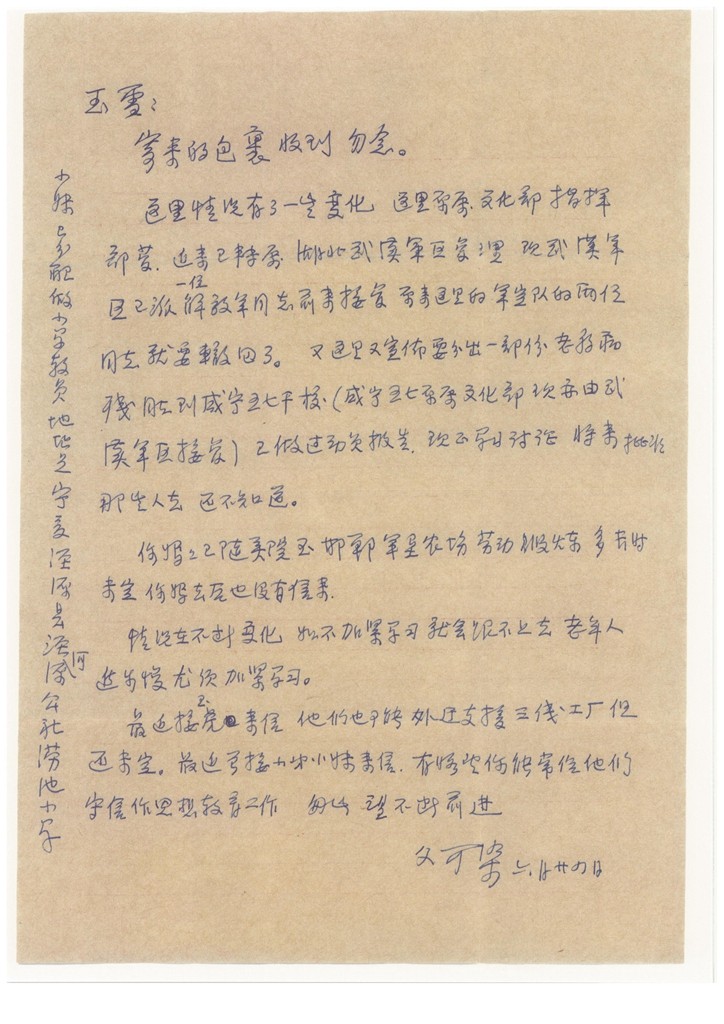 玉雪：
寄来的包裹收到 勿念。
这里情况有了一些变化 这里原属文化部指挥
部管. 近来已转属湖北武汉军区管理 现武汉军
区已派一位解放军同志前来接管 原来这里的军宣队的两位
同志就要撤回了。 又这里又宣布要分出一部份老弱病
残同志到咸宁五七干校（咸宁五七原属文化部现亦由武
汉军区接管）已做过动员报告. 现正学习讨论 将来批准
那些人去 还不知道。
你妈妈已随美院至邯郸军垦农场劳动锻炼 多长时
未定 你妈去后也没有信来.
情况在不断变化 如不加紧学习就会跟不上去 老年人
进步慢尤须加紧学习。
最近接玉 来信 他们也可能外迁支援三线工厂但
还未定。最近曾接小弟小妹来信. 有暇些你能常给他们
写信作思想教育工作 匆此 望不断前进
父可染 六月廿四日
小妹已分配做小学教员地址是宁夏泾源县泾河源公社涝池小学